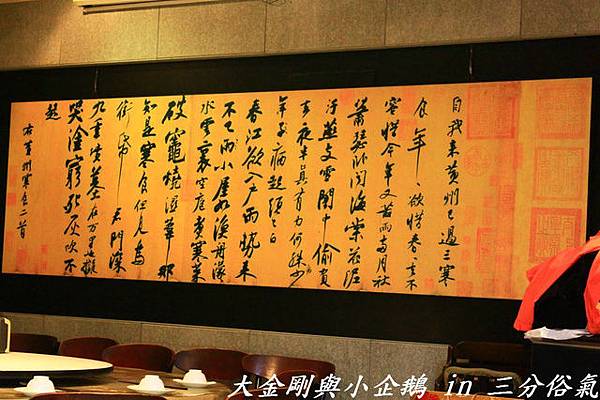 自我来黄州已過三寒
食年〻欲惜春〻去不
容惜今年又苦雨兩月秋
蕭瑟卧聞海棠花泥
汙燕支雪闇中偷負
去夜半真有力何殊少
年子病起須已白
春江欲入戶雨勢来
不已雨小屋如漁舟濛〻
水雲裏空庖煮寒菜
破竈燒濕葦那
知是寒食但見烏
銜帋君門深
九重墳墓在万里也擬
哭塗窮死灰吹不
起
右黄州寒食二首
大金剛與小企鵝 in 三分俗氣